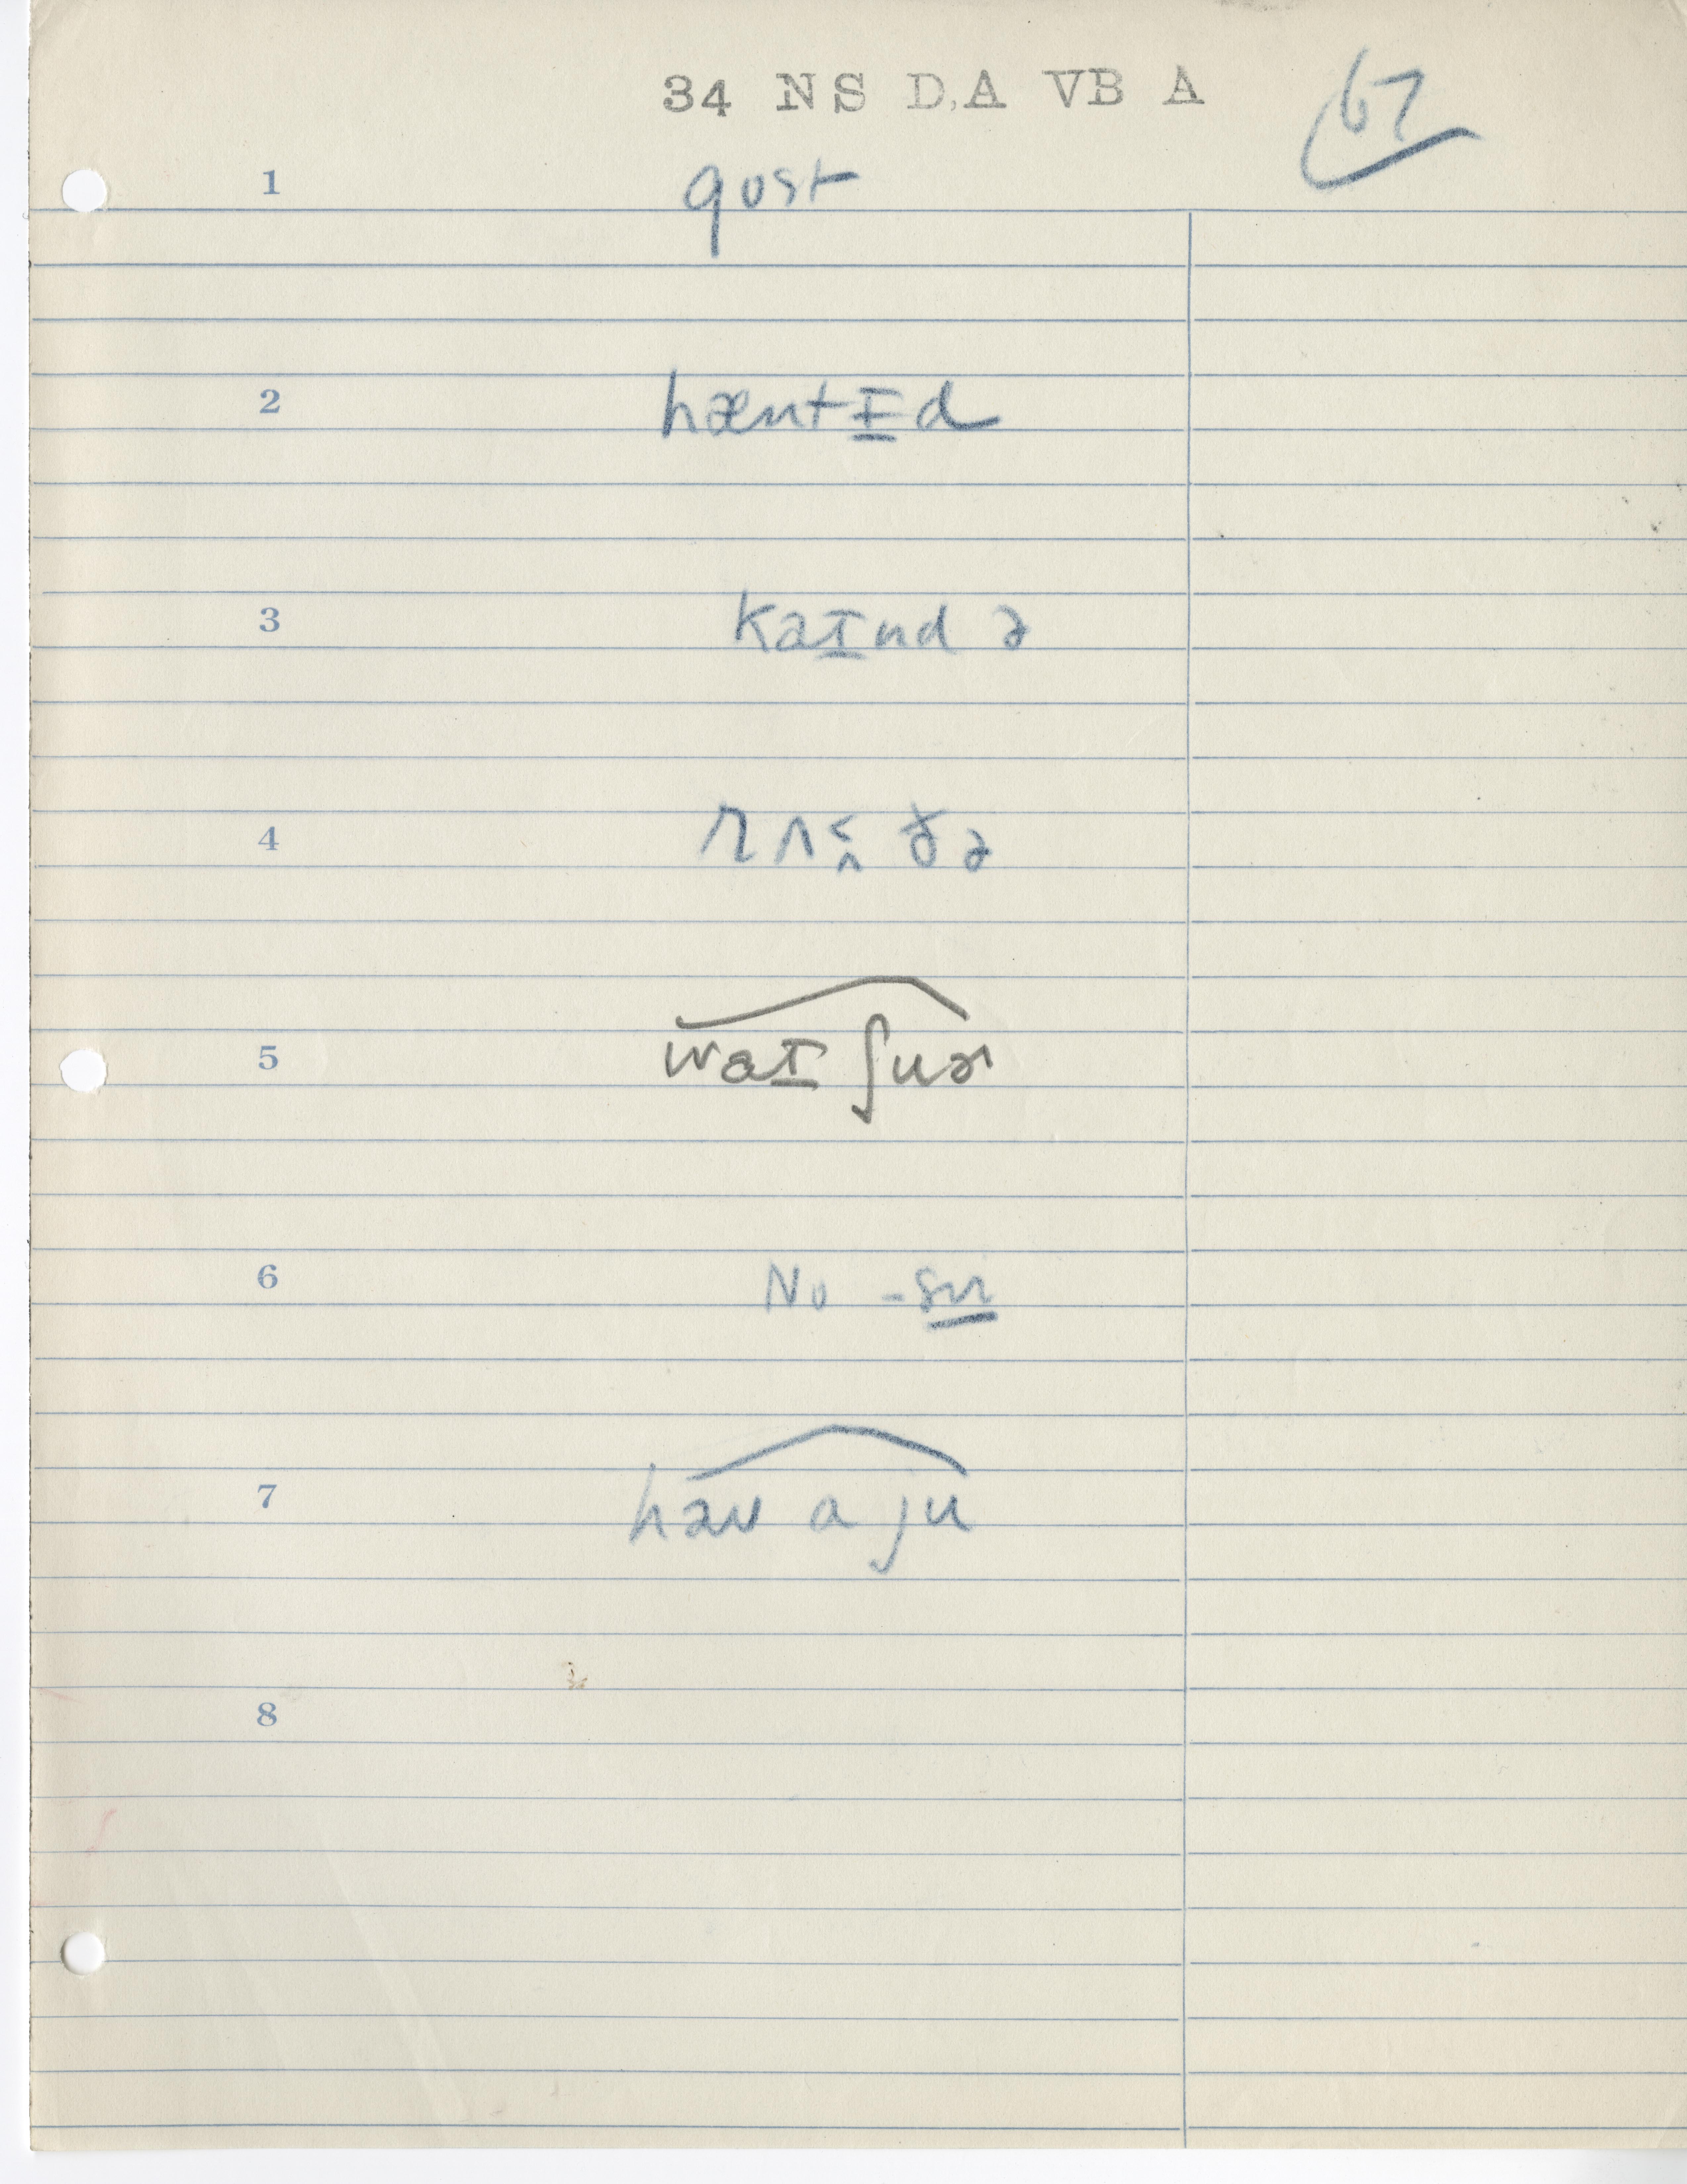 34 NS D,A VB A
67
1 gost
2 hæntɪd
3 kaɪnd ə
4 rʌ˂ ðə
5 waɪ ʃuɚ
6 No - sɪr
7 haʊ a ju
8